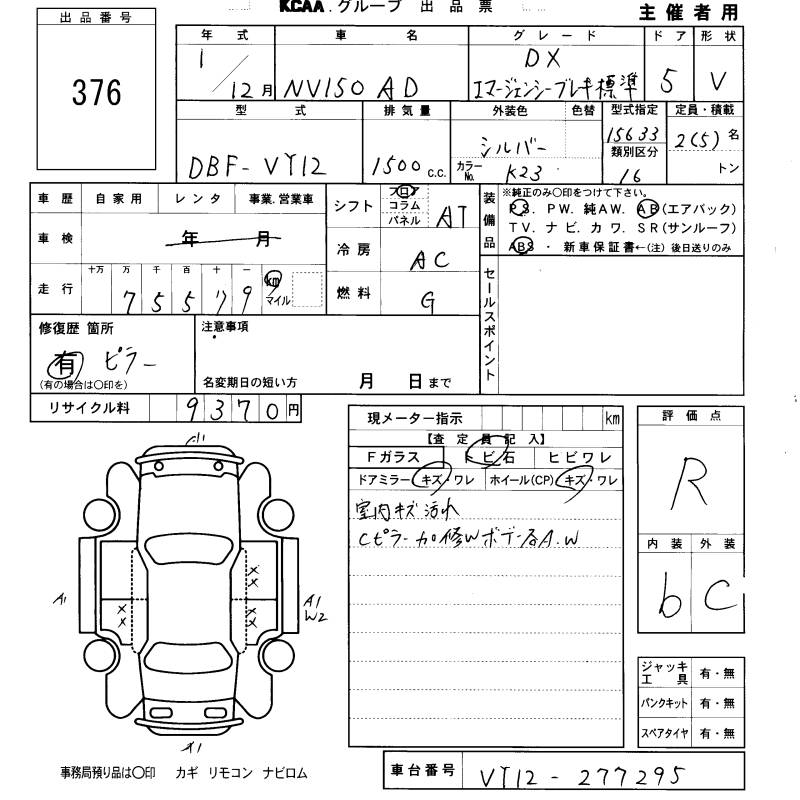 KCAA.グループ 出品票
主催者用
出品番号
376
年式 車名 グレード ドア 形状
1/12月 NV150 AD DX エマージェンシーブレーキ標準 5 V
型式 排気量 外装色 色替 型式指定 定員・積載
DBF-VY12 1500c.c. シルバー カラーNo. K23 15633 2(5)名
類別区分 16 トン
車歴 自家用 レンタ 事業.営業車
シフト フロア コラム パネル AT
装備品 ※純正のみ〇印をつけて下さい。
PS. PW. 純AW. AB(エアバック)
TV. ナビ. カワ. SR(サンルーフ)
ABS ・ 新車保証書←(注) 後日送りのみ
車検 年 月
冷房 AC
走行 十万 万 千 百 十 一 km マイル
7 5 5 9
燃料 G
セールスポイント
修復歴 箇所
有 ピラー
(有の場合は〇印を)
注意事項
名変期日の短い方 月 日まで
リサイクル料 9370円
現メーター指示 km
【査定員記入】
Fガラス トビ石 ヒビワレ
ドアミラー キズ・ワレ ホイール(CP) キズ・ワレ
室内キズ汚れ
Cピラー加修W ボデー各A.W
評価点
R
内装 外装
b C
A1
A1
A1
W2
A1
ジャッキ工具 有・無
パンクキット 有・無
スペアタイヤ 有・無
事務局預り品は〇印 カギ リモコン ナビロム
車台番号 VY12-277295